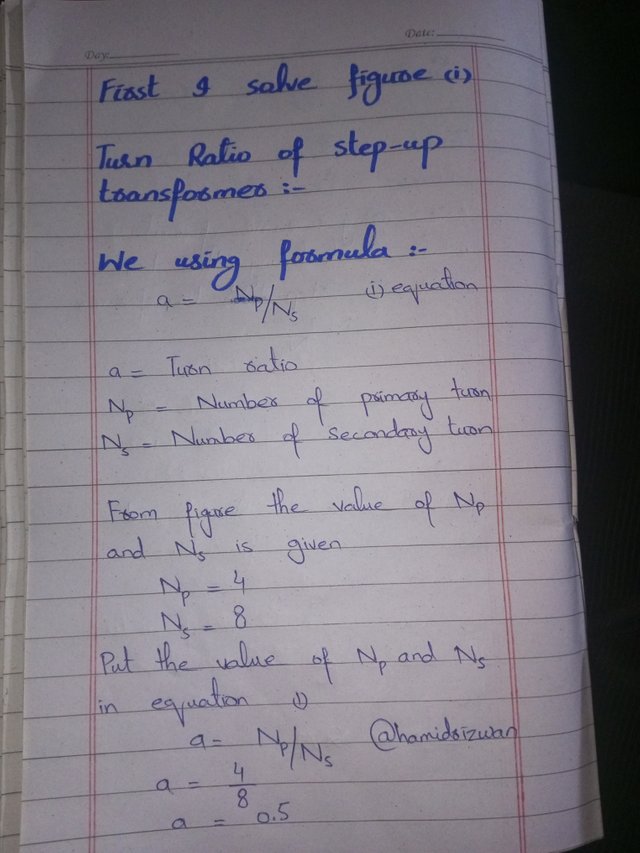 Day:
Date:
First I solve figure (i)
Turn Ratio of step-up
transformer :-
We using formula :-
a = Np/Ns (i) equation
a = Turn ratio
Np = Number of primary turn
Ns = Number of secondary turn
From figure the value of Np
and Ns is given
Np = 4
Ns = 8
Put the value of Np and Ns
in equation (i)
a = Np/Ns @hamidrizwan
a = 4/8
a = 0.5